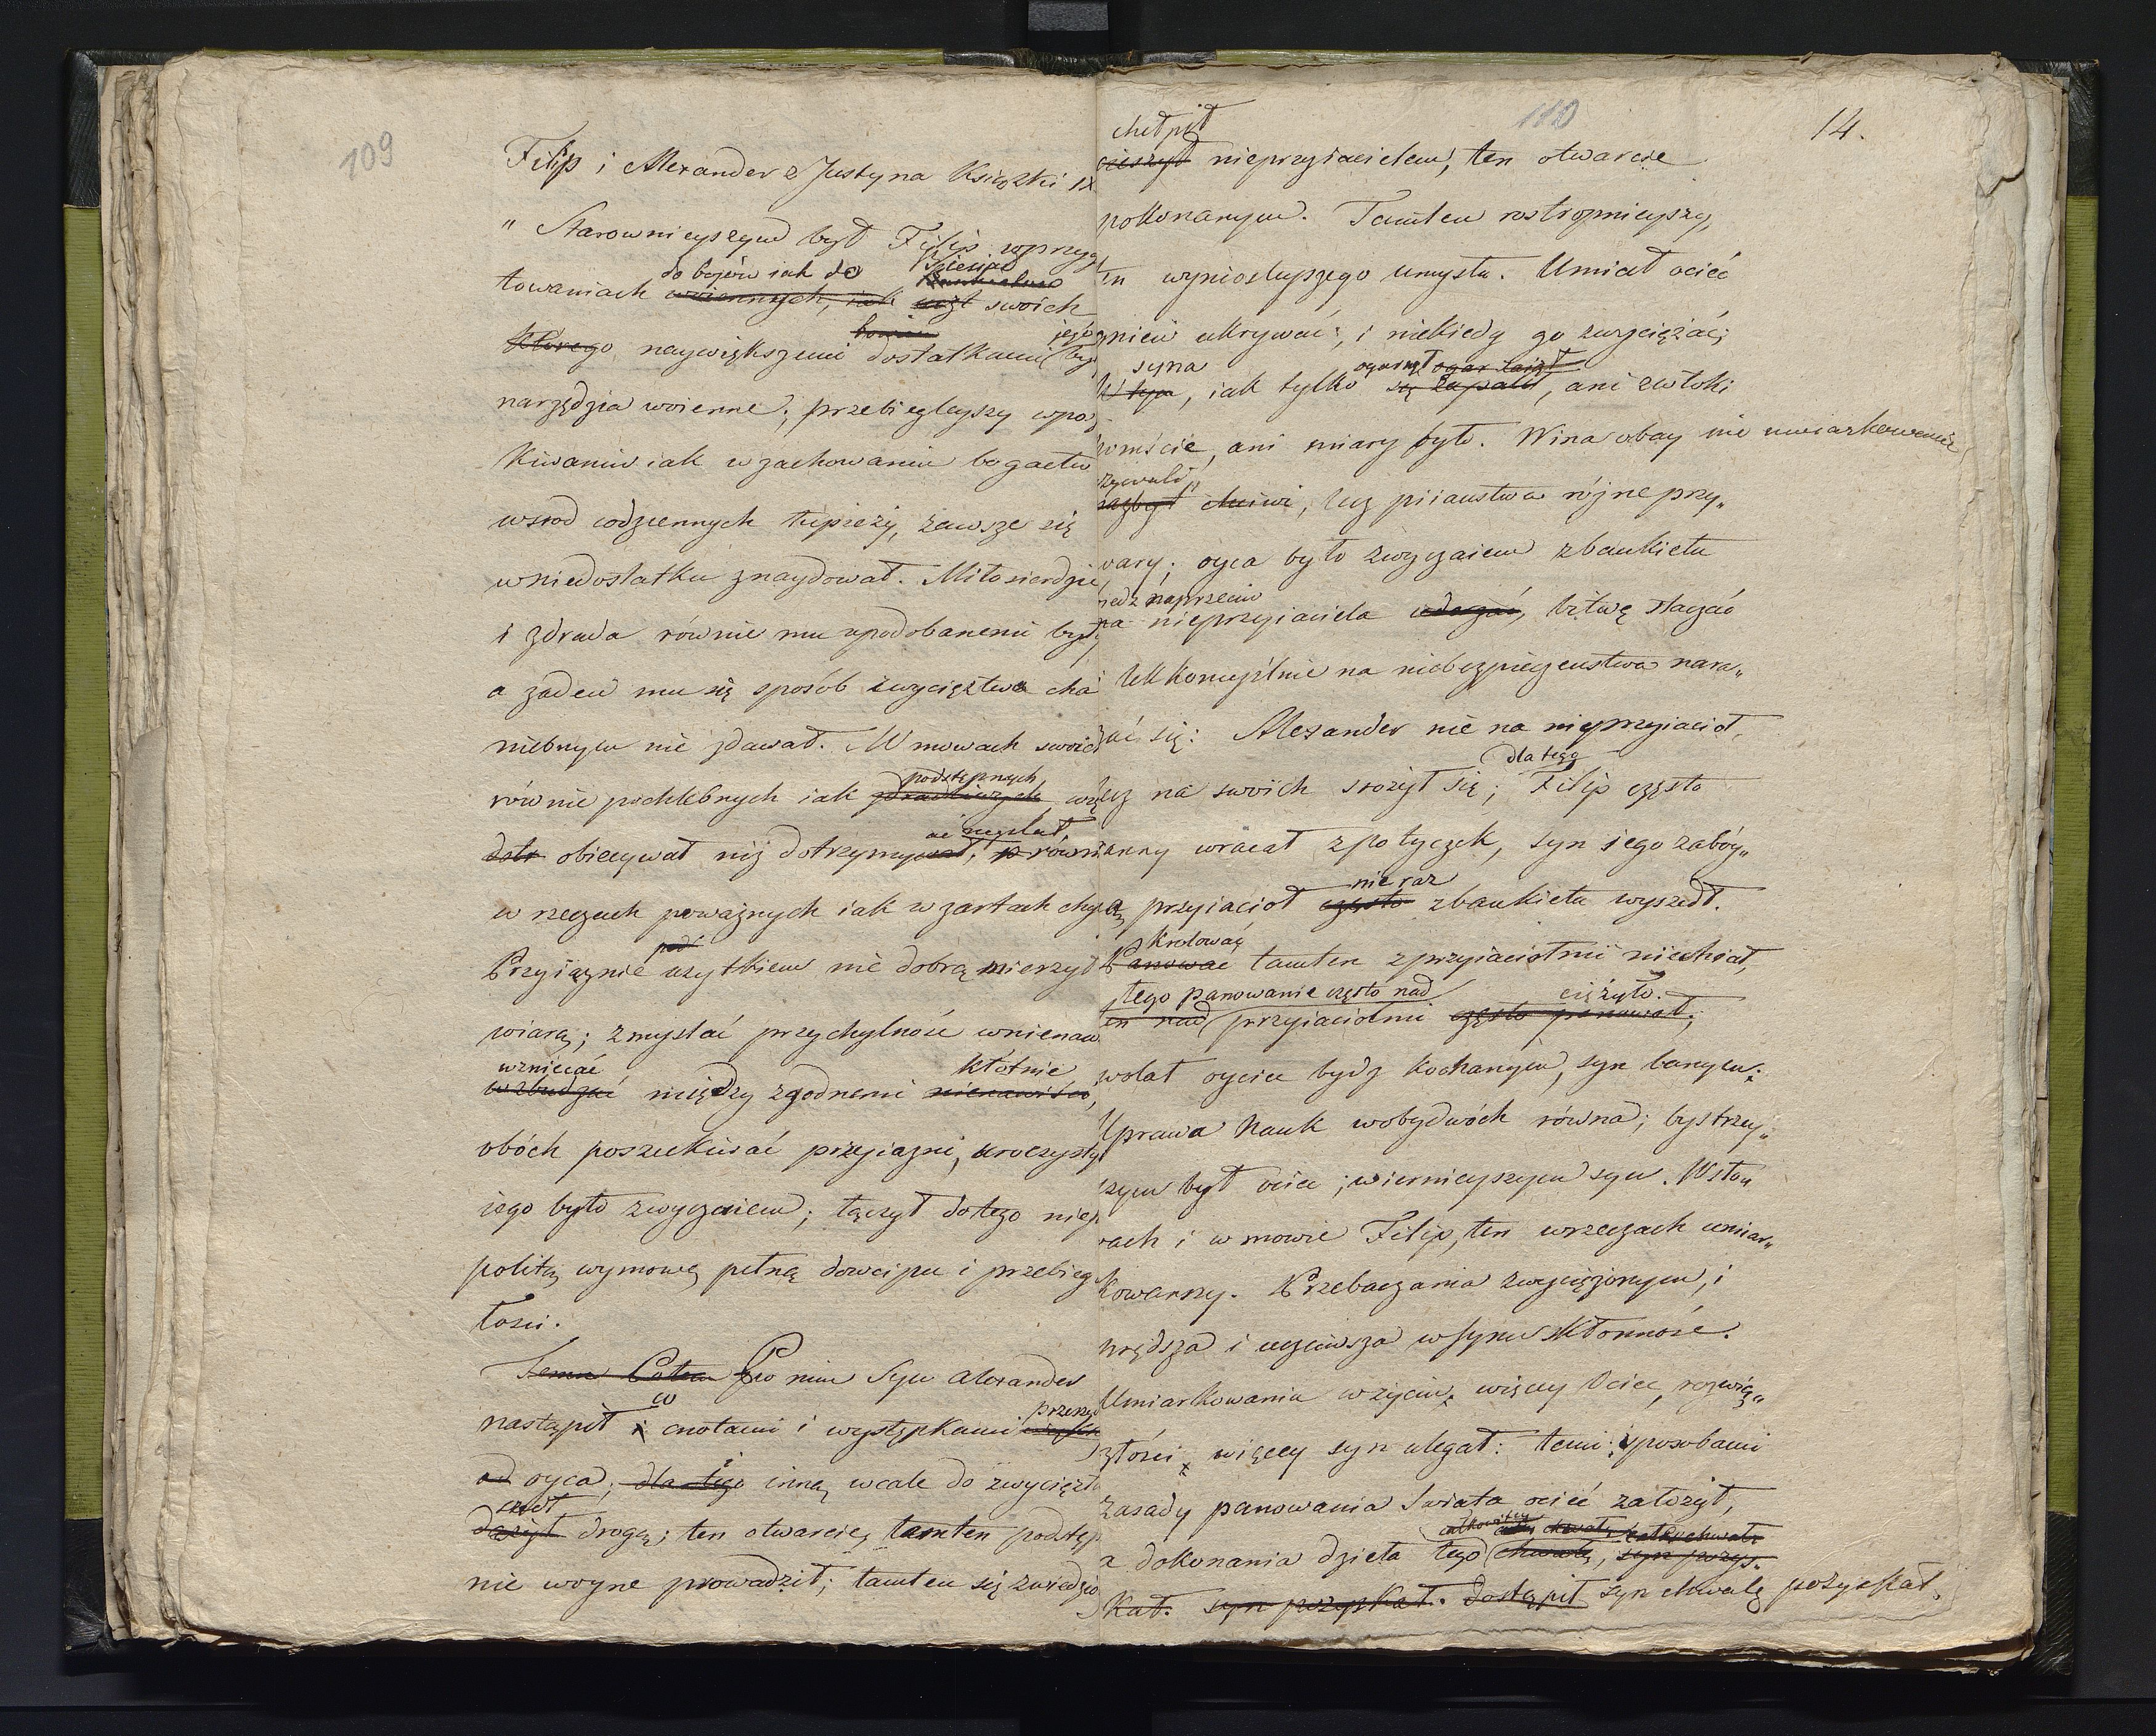 109
Filip i Alexander z Justyna Książki IX
" Starownieyszym był Filip wprzygo
do bojów iak do biesiad
towaniach woiennych, iak uczt swoich
jego
którego naywiększemi dostatkami by
narzędzia woienne; przebiegleyszy wpo
kiwaniu iak w zachowaniu bogactw
wsrod codziennych łupieży, zawsze się
wniedostatku znaydował. Miłosierdzie,
i zdrada równie mu upodobanemi były
a żaden mu się sposób zwycięztwa cha
niebnym nie zdawał. W mowach swoich
podstępnych,
równie pochlebnych iak zdradliwych
ać myslał,
obiecywał niż dotrzymywał; równi
w rzeczach poważnych iak w żartach
pod
Przyiaznie użytkiem nie dobrą mierzył
wiarą; zmyslać przychylność wnienaw
wzniecać kłótnie
wzbudzać między zgodnemi nienawisc,
obóch poszukiwać przyiazni, uroczysty
iego było zwyczaiem; łączył do tego niep
politą wymowę pełną dowcipu i przebieg
łosci.
Temu Po nim Syn Alexander
w
nastąpił i cnotami i występkami
od oyca, dla tego inną wcale do zwycięzt
szedł
dążył drogą; ten otwarcie, tamten podstęp
nie woynę prowadził; tamten się zwiedzio
110
14.
chełpił
cieszył nieprzyiacielem, ten otwarcie
pokonanym. Tamten rostropnieyszy,
ten wyniosleyszego umysłu. Umiał ociec
gniew ukrywać, i niekiedy go zwyciężać;
syna ogarnął ogar
W tym, iak tylko się zapalił, ani zwłoki
zemście, ani miary było. Wina obay nie umiarkowanie
zywali,
nazbyt chciwi, lecz piiaństwa różne przy„
wary; oyca było zwyczaiem zbankietu
naprzeciw
na nieprzyiaciela uderzać, bitwę staczać
lekkomyślnie na niebezpieczeństwa nara„
zać się: Alexander nie na nieprzyiaciół,
dla tego
lecz na swoich srożył się; Filip często
ranny wracał z potyczek, syn iego zabóy„
cą przyiaciół
nie raz
często zbankietu wyszedł.
Krolować
Panować tamten z przyiaciołmi niechciał,
tego panowanie często nad ciężyło.
ten nad przyiaciolmi często panował;
wolał oyciec bydz kochanym, syn
Uprawa Nauk wobydwóch równa; bystrzey„
szym był ociec; wiernieyszym syn. Wsłow
rach i w mowie Filip, ten wrzeczach umiar„
kowanszy. Przebaczania zwyciężonym, i
prędsza i uczciwsza w synu skłonność.
Umiarkowania wzyciu, więcey Ociec, rozwią„
złości więcey syn ulegał: temi sposobami
Zasady panowania Swiata ociec założył,
całkowitey chwały
a dokonania dzieła tego chwałę, syn pozys„
kał. syn pozyskał. dostąpił syn chwałę pozyskał.